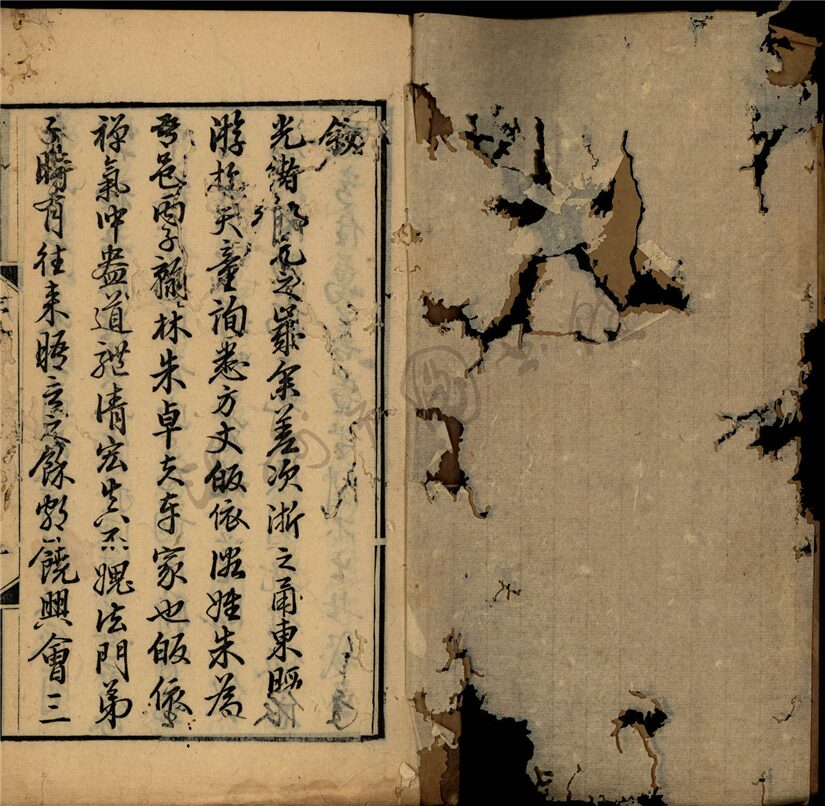 敘
光緒元之歲余差次浙之甬東暇
游於天童詢悉方丈皈依俗姓朱為
吾邑丙子翰林朱卓夫本家也皈依
禪氣冲盎道詣清宏真不愧法門弟
子時有往來晤言之餘頗饒興會三